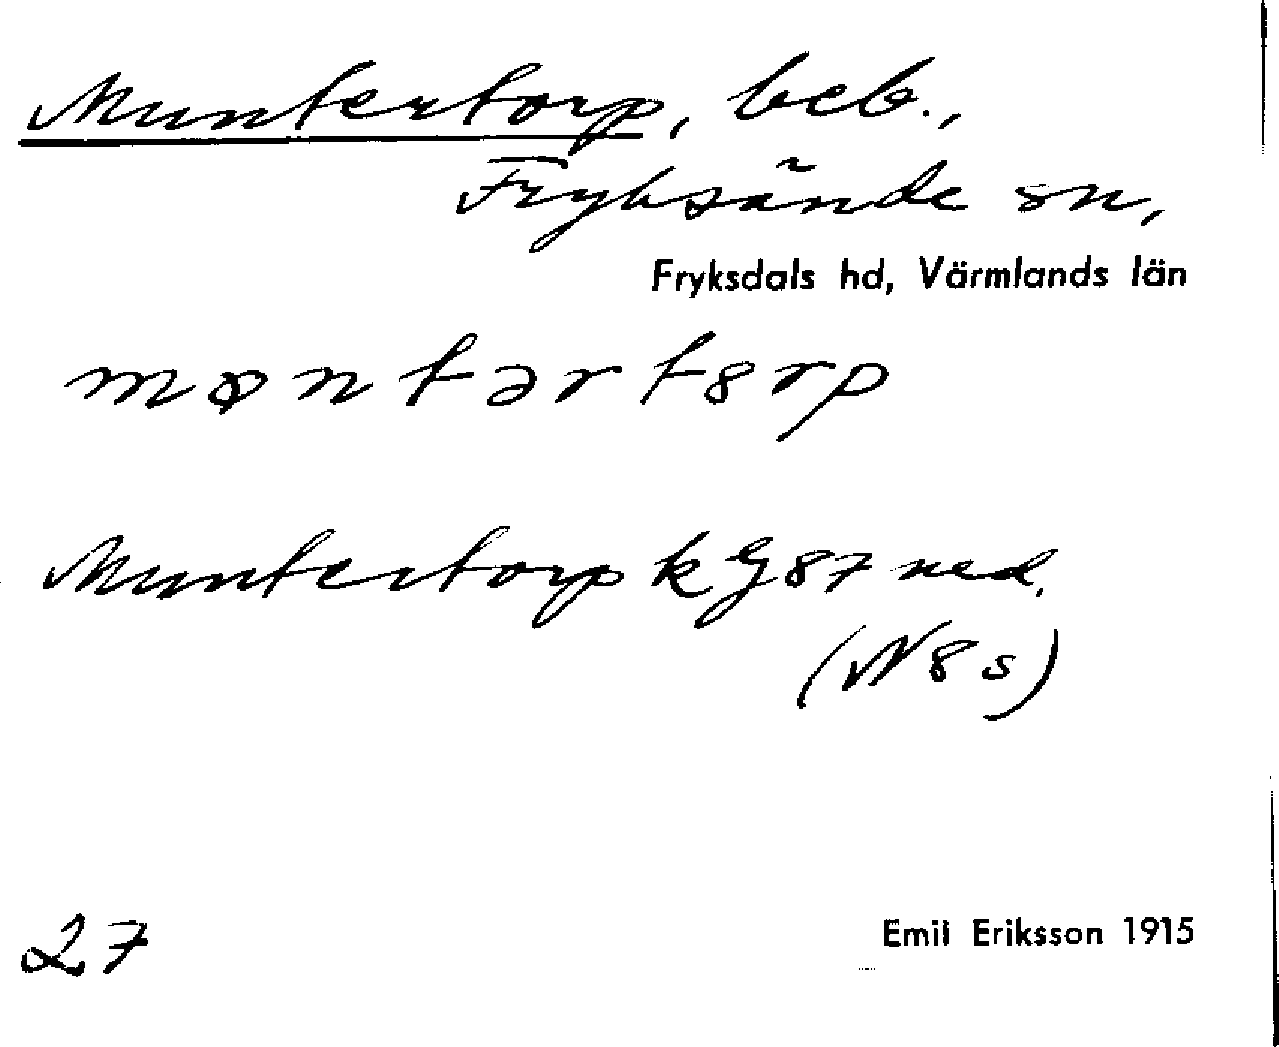 Muntertorp, beb.,
Fryksände sn,
Fryksdals hd, Värmlands län
Muntertorp k G 87 ned.
(N 8 s)
27
Emil Eriksson 1915